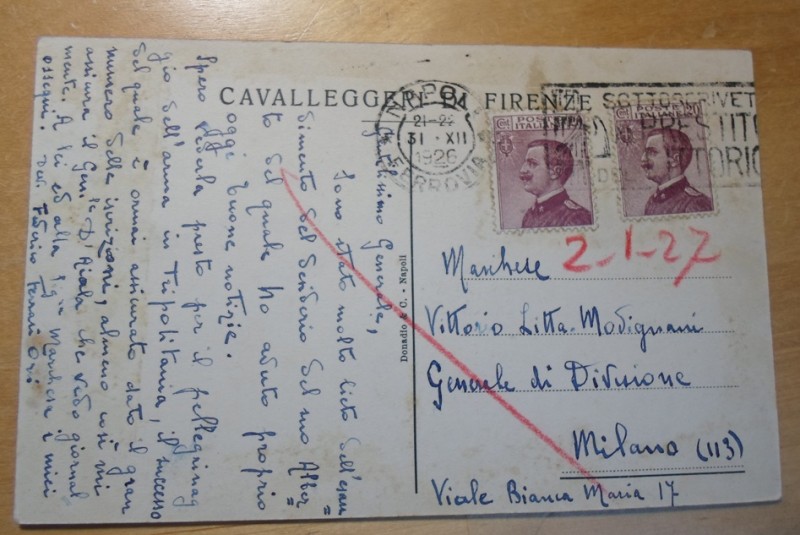 CAVALLEGGERI DI FIRENZE
NAPOLI
21-22
31 · XII
1926
FERROVIA
SOTTOSCRIVET
PRESTITO
POSTE ITALIANE
2-1-27
Gentilissimo Generale,
Sono stato molto lieto dell'esau
dimento del desiderio del suo Alber=
to del quale ho avuto proprio
oggi buone notizie.
Spero vederla presto per il pellegrinag
gio dell'arma in Tripolitania, il successo
del quale è ormai assicurato dato il gran
numero delle iscrizioni, almeno così mi
assicura il Gen.le D'Aiala che vedo giornal
mente. A lei ed alla Sig.ra Marchesa i miei
ossequi. Dev. Federico Ferrari Orsi
Donadio & C. - Napoli
Marchese
Vittorio Litta-Modignani
Generale di Divisione
Milano (113)
Viale Bianca Maria 17